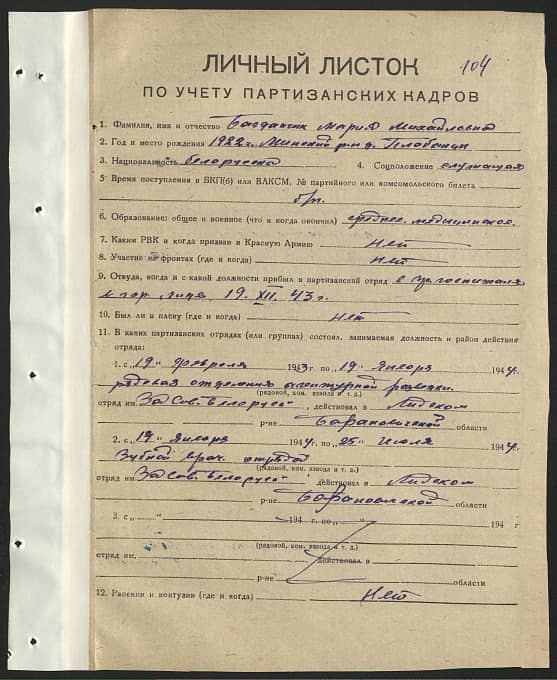 104
ЛИЧНЫЙ ЛИСТОК
ПО УЧЕТУ ПАРТИЗАНСКИХ КАДРОВ
1. Фамилия, имя и отчество Богданчик Мария Михайловна
2. Год и место рождения 1922 г. Минский р-н д.
3. Национальность белоруска 4. Соцположение служащая
5. Время поступления в ВКП(б) или ВЛКСМ, № партийного или комсомольского билета
б/п.
6. Образование: общее и военное (что и когда окончил) среднее медицинское.
7. Каким РВК и когда призван в Красную Армию Нет
8. Участие на фронтах (где и когда) Нет
9. Откуда, когда и с какой должности прибыл в партизанский отряд с
гор Лида 19. XII. 43 г.
10. Был ли в плену (где и когда) Нет
11. В каких партизанских отрядах (или группах) состоял, занимаемая должность и район действия
отряда:
1. с „19“ февраля 1943 г. по „19“ января 1944 г.
рядовая отделения агентурной разведки.
(рядовой, ком. взвода и т. д.)
отряд им. За Сов. Белорусь, действовал в Лидском
р-не Барановичской области
2. с „19“ января 1944 г. по „25“ июля 1944 г.
Зубной врач отряда
(рядовой, ком. взвода и т. д.)
отряд им. За Сов. Белорусь, действовал в Лидском
р-не Барановичской области
3. с „ “ 194 г. по „ “ 194 г
(рядовой, ком. взвода и т. д.)
отряд им. действовал в
р-не области
12. Ранения и контузии (где и когда) Нет